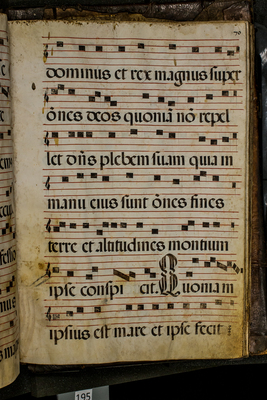 dominus et rex magnus super
oñes deos quoniã nõ repel
let dñs plebem suam quia in
manu eius sunt oñes fines
terre et altitudines montium
ipse conspi cit. Quoniam in
ipsius est mare et ipse fecit
195